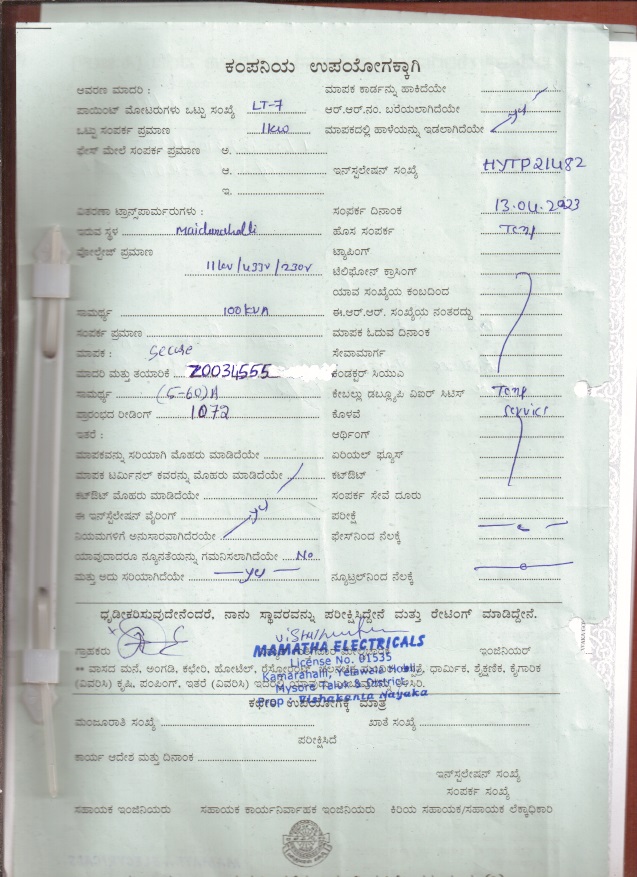 ಕಂಪನಿಯ ಉಪಯೋಗಕ್ಕಾಗಿ
ಆವರಣ ಮಾದರಿ : ಮಾಪಕ ಕಾರ್ಡನ್ನು ಹಾಕಿದೆಯೇ
ಪಾಯಿಂಟ್ ಮೋಟರುಗಳು ಒಟ್ಟು ಸಂಖ್ಯೆ LT-7 ಆರ್.ಆರ್.ನಂ. ಬರೆಯಲಾಗಿದೆಯೇ yes
ಒಟ್ಟು ಸಂಪರ್ಕ ಪ್ರಮಾಣ 11kw ಮಾಪಕದಲ್ಲಿ ಹಾಳೆಯನ್ನು ಇಡಲಾಗಿದೆಯೇ
ಫೇಸ್ ಮೇಲೆ ಸಂಪರ್ಕ ಪ್ರಮಾಣ ಅ.
ಆ. ಇನ್‌ಸ್ಟಲೇಷನ್ ಸಂಖ್ಯೆ HYTP21482
ಇ.
ವಿತರಣಾ ಟ್ರಾನ್ಸ್‌ಫಾರ್ಮರುಗಳು : ಸಂಪರ್ಕ ದಿನಾಂಕ 13.04.2023
ಇರುವ ಸ್ಥಳ ಹೊಸ ಸಂಪರ್ಕ Temp
ವೋಲ್ಟೇಜ್ ಪ್ರಮಾಣ ಟ್ಯಾಪಿಂಗ್
11kv/433v/230v ಟೆಲಿಫೋನ್ ಕ್ರಾಸಿಂಗ್
ಯಾವ ಸಂಖ್ಯೆಯ ಕಂಬದಿಂದ
ಸಾಮರ್ಥ್ಯ 100 KVA ಈ.ಆರ್.ಆರ್. ಸಂಖ್ಯೆಯ ನಂತರದ್ದು
ಸಂಪರ್ಕ ಪ್ರಮಾಣ ಮಾಪಕ ಓದುವ ದಿನಾಂಕ
ಮಾಪಕ : Secure ಸೇವಾಮಾರ್ಗ
ಮಾದರಿ ಮತ್ತು ತಯಾರಿಕೆ Z0034555 ಕಂಡಕ್ಟರ್ ಸಿಯುಎ
ಸಾಮರ್ಥ್ಯ (5-60)A ಕೇಬಲ್ಲು ಡಬ್ಲ್ಯೂಪಿ ವಿಐರ್ ಸಿಟಿಸ್ Temp
ಪ್ರಾರಂಭದ ರೀಡಿಂಗ್ 1072 ಕೊಳವೆ service
ಇತರೆ : ಅರ್ಥಿಂಗ್
ಮಾಪಕವನ್ನು ಸರಿಯಾಗಿ ಮೊಹರು ಮಾಡಿದೆಯೇ ಏರಿಯಲ್ ಫ್ಯೂಸ್
ಮಾಪಕ ಟರ್ಮಿನಲ್ ಕವರನ್ನು ಮೊಹರು ಮಾಡಿದೆಯೇ ಕಟ್‌ಔಟ್
ಕಟ್‌ಔಟ್ ಮೊಹರು ಮಾಡಿದೆಯೇ ಸಂಪರ್ಕ ಸೇವೆ ದೂರು
ಈ ಇನ್‌ಸ್ಟಲೇಷನ್ ವೈರಿಂಗ್ yes ಪರೀಕ್ಷೆ
ನಿಯಮಗಳಿಗೆ ಅನುಸಾರವಾಗಿದೆಯೇ ಫೇಸ್‌ನಿಂದ ನೆಲಕ್ಕೆ
ಯಾವುದಾದರೂ ನ್ಯೂನತೆಯನ್ನು ಗಮನಿಸಲಾಗಿದೆಯೇ No
ಮತ್ತು ಅದು ಸರಿಯಾಗಿದೆಯೇ yes ನ್ಯೂಟ್ರಲ್‌ನಿಂದ ನೆಲಕ್ಕೆ
ಧೃಢೀಕರಿಸುವುದೇನೆಂದರೆ, ನಾನು ಸ್ಥಾವರವನ್ನು ಪರೀಕ್ಷಿಸಿದ್ದೇನೆ ಮತ್ತು ರೇಟಿಂಗ್ ಮಾಡಿದ್ದೇನೆ.
ಗ್ರಾಹಕರು ಇಂಜಿನಿಯರ್
MAMATHA ELECTRICALS
License No. 01535
Kamarahalli, Yelawala Hobli,
Mysore Taluk & District.
Prop : Vishakanta Nayaka
** ವಾಸದ ಮನೆ, ಅಂಗಡಿ, ಕಛೇರಿ, ಹೋಟೆಲ್, ಧಾರ್ಮಿಕ, ಶೈಕ್ಷಣಿಕ, ಕೈಗಾರಿಕ
(ವಿವರಿಸಿ) ಕೃಷಿ, ಪಂಪಿಂಗ್, ಇತರೆ (ವಿವರಿಸಿ)
ಕಛೇರಿ ಉಪಯೋಗಕ್ಕೆ ಮಾತ್ರ
ಮಂಜೂರಾತಿ ಸಂಖ್ಯೆ ಖಾತೆ ಸಂಖ್ಯೆ
ಪರೀಕ್ಷಿಸಿದೆ
ಕಾರ್ಯ ಆದೇಶ ಮತ್ತು ದಿನಾಂಕ
ಇನ್‌ಸ್ಟಲೇಷನ್ ಸಂಖ್ಯೆ
ಸಂಪರ್ಕ ಸಂಖ್ಯೆ
ಸಹಾಯಕ ಇಂಜಿನಿಯರು ಸಹಾಯಕ ಕಾರ್ಯನಿರ್ವಾಹಕ ಇಂಜಿನಿಯರು ಕಿರಿಯ ಸಹಾಯಕ/ಸಹಾಯಕ ಲೆಕ್ಕಾಧಿಕಾರಿ